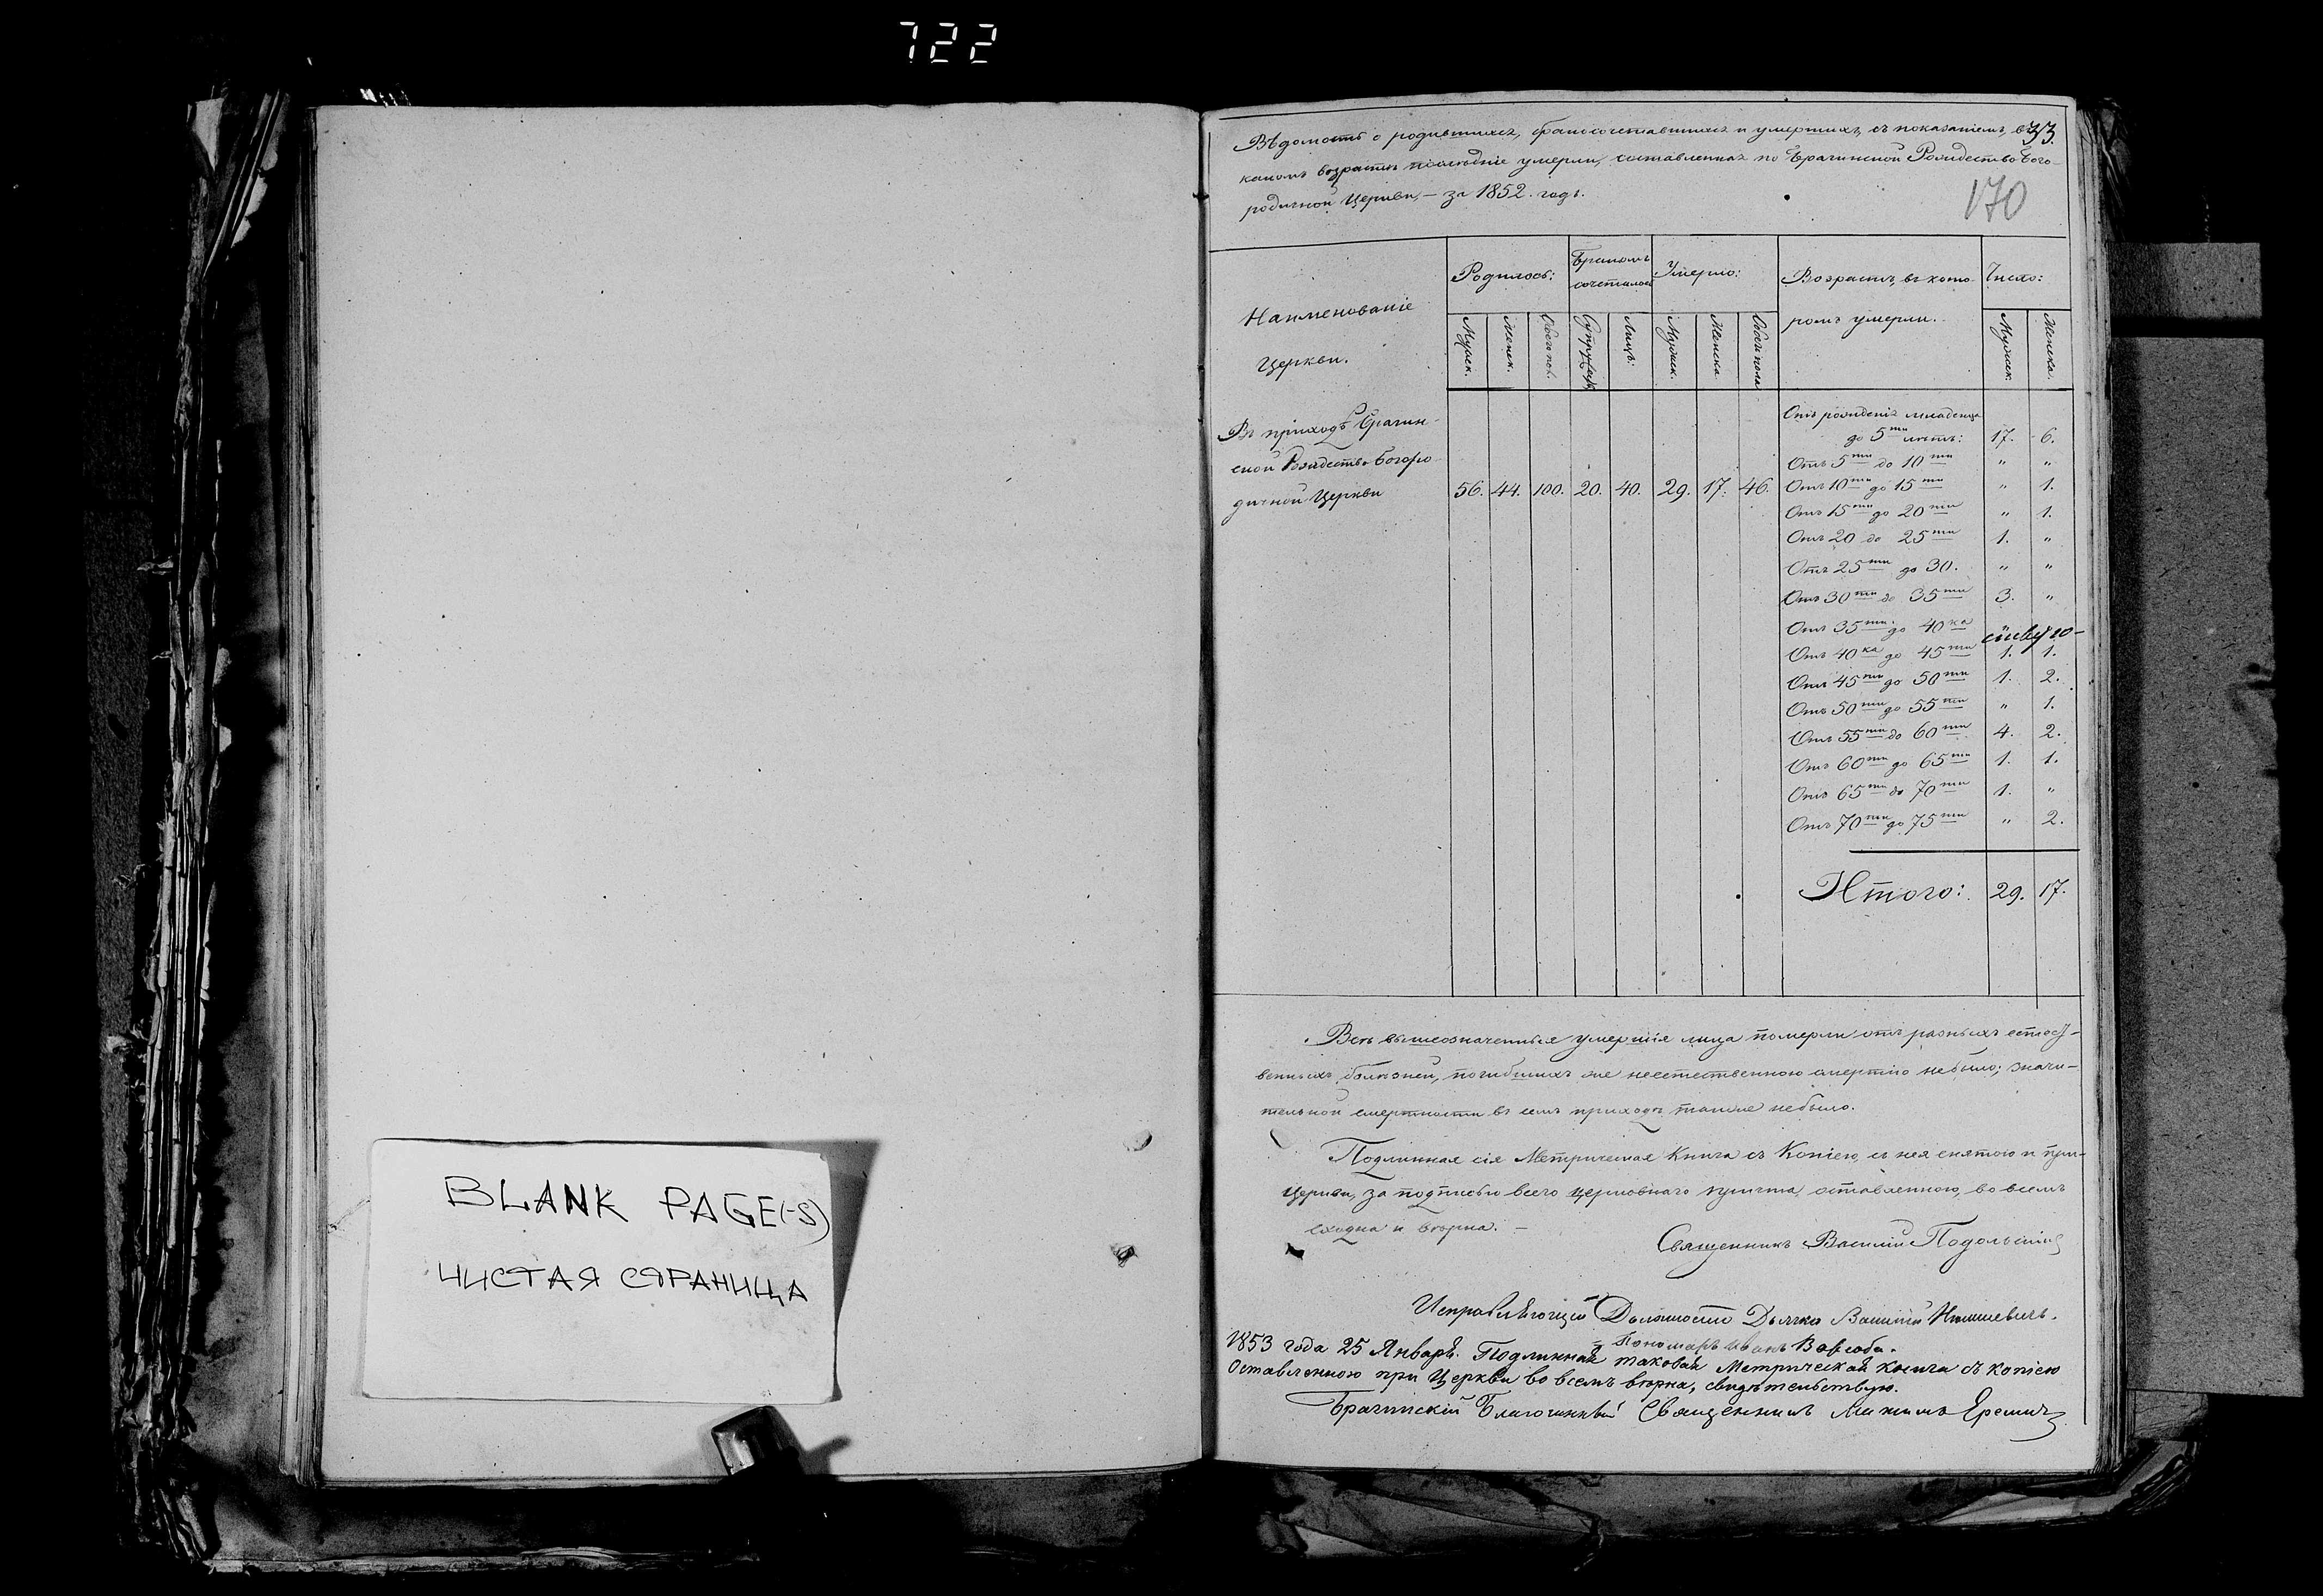 722
BLANK PAGE(-S)
ЧИСТАЯ СТРАНИЦА
33.
170
Вѣдомость о родившихся, бракосочетавшихся и умершихъ, съ показаніемъ, въ
какомъ возрастѣ послѣдніе умерли, составленная по Брагинской Рождество Бого-
родичной Церкви, – за 1852. годъ.
Наименованіе
Церкви.
Родилось:
Бракомъ
сочеталось
Умерло:
Возрастъ, въ кото-
ромъ умерли.
Число:
Мужск.
Женск.
Обоего пол.
Супружес.
Лицъ.
Мужск.
Женска.
Обоего пола
Мужск.
Женска.
Въ приходѣ Брагин-
ской Рождество Богоро-
дичной Церкви
56. 44. 100. 20. 40. 29. 17. 46.
Отъ рожденія младенца
до 5ти лѣтъ: 17. 6.
Отъ 5ти до 10ти " "
Отъ 10ти до 15ти " 1.
Отъ 15ти до 20ти " 1.
Отъ 20 до 25ти 1. "
Отъ 25ти до 30. " "
Отъ 30ти до 35ти 3. "
Отъ 35ти до 40ка
Отъ 40ка до 45ти 1. 1.
Отъ 45ти до 50ти 1. 2.
Отъ 50ти до 55ти " 1.
Отъ 55ти до 60ти 4. 2.
Отъ 60ти до 65ти 1. 1.
Отъ 65ти до 70ти 1. "
Отъ 70ти до 75ти " 2.
Итого: 29. 17.
Всѣ вышеозначенныя умершія лица померли отъ разныхъ естест-
венныхъ болѣзней, погибшихъ же неестественною смертію небыло; значи-
тельной смертности въ семъ приходѣ также небыло.
Подлинная сія Метрическая Книга съ Копіею, съ нея снятою и при
Церкви, за подписью всего церковнаго причта, оставленною, во всемъ
сходна и вѣрна. –
Священникъ Василій Подольскій
Исправляющій Должность Дьячка Василій
Пономарь Иванъ Ворсоба.
1853 года 25 Января. Подлинная таковая Метрическая книга съ копіею
Оставленною при Церкви во всемъ вѣрна, свидѣтельствую.
Брагинскій Благочинный Священникъ Максимъ Еремичъ